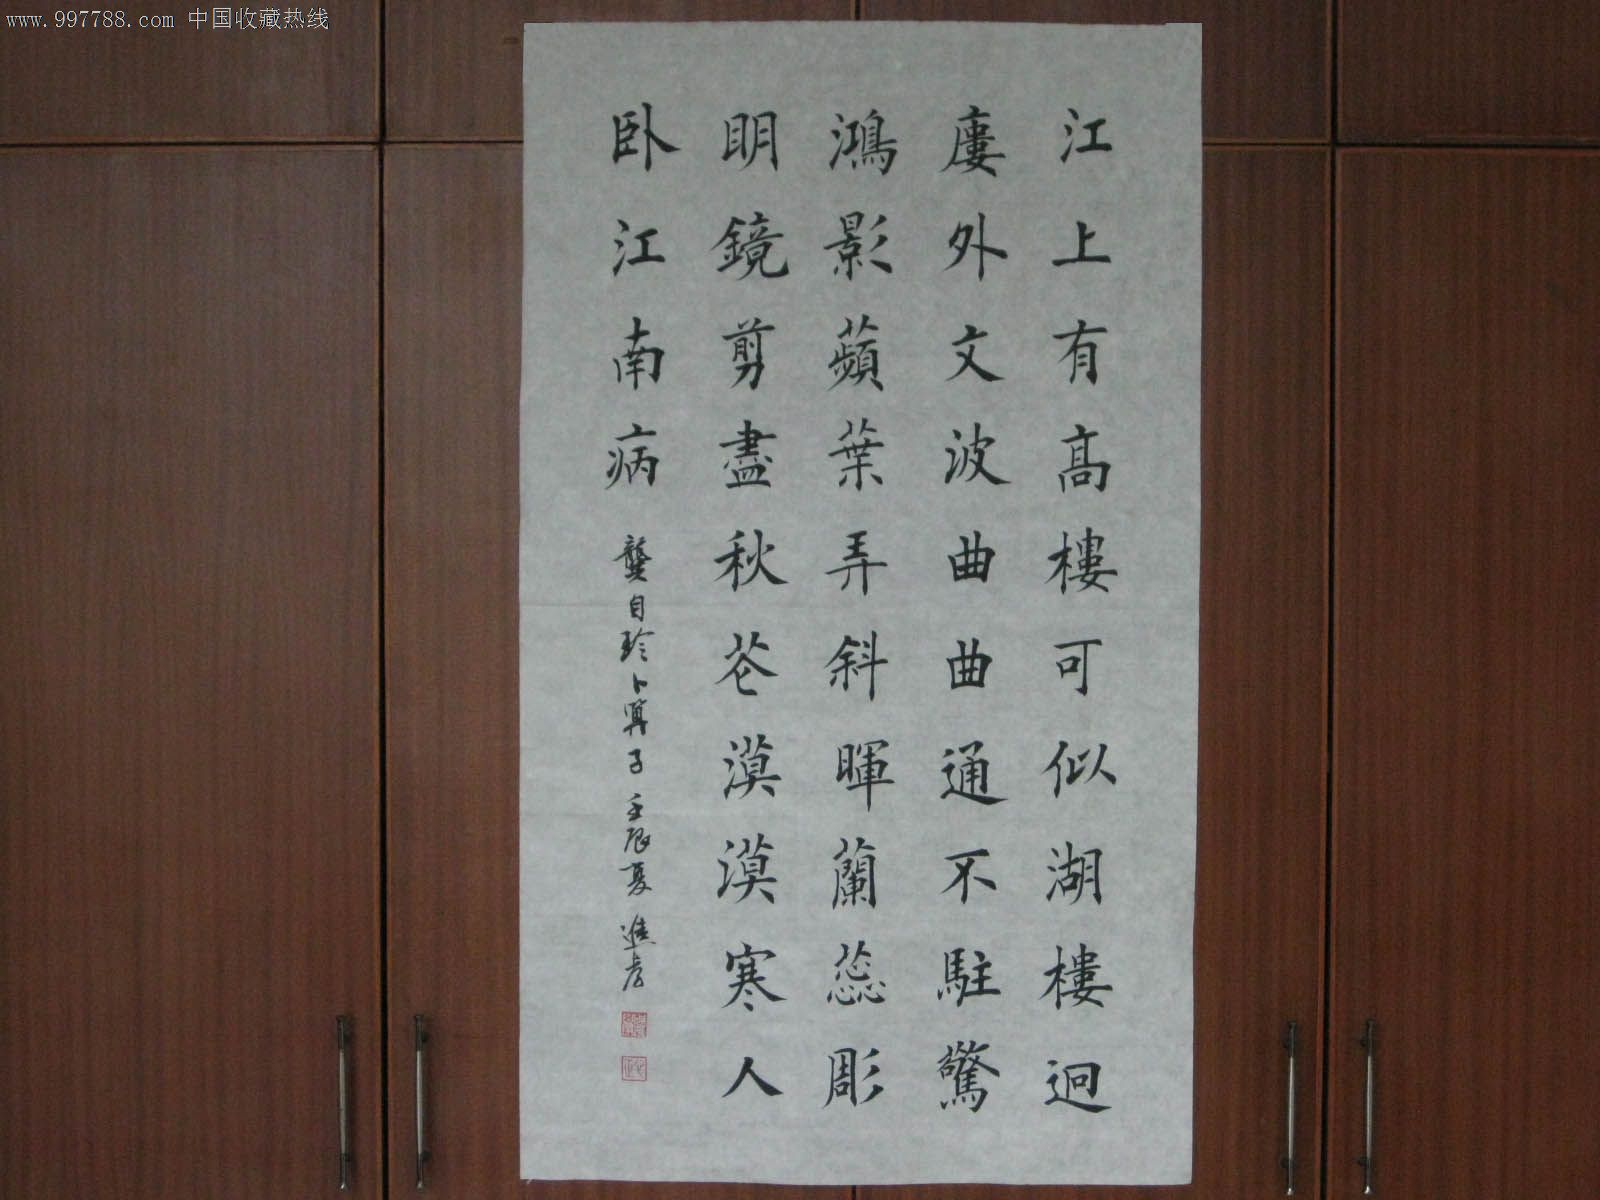 www.997788.com 中国收藏热线
江上有高樓可似湖樓迥
廔外文波曲曲通不駐驚
鴻影蘋葉弄斜暉蘭蕊彫
明鏡剪盡秋花漠漠寒人
卧江南病
龔自珍卜算子壬辰夏進孝